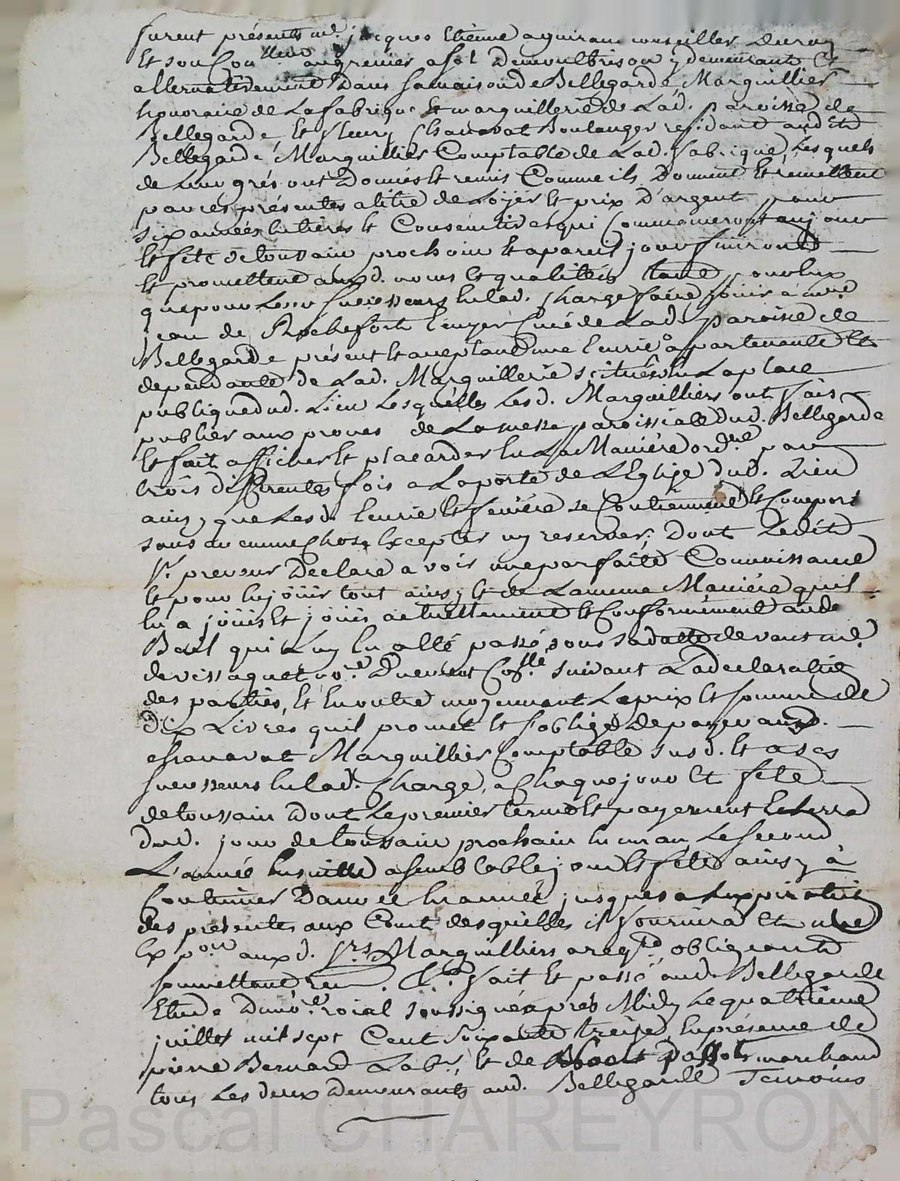 furent présents me. jacques Etienne aguiran conseiller du roy
Et son au grenier a sel de montbrison y demeurant Et
alternativement dans sa maison de Bellegarde Marguillier
honoraire de La fabrique Et marguillerie de Lad. paroisse de
Bellegarde Et fleury Chanavat Boulanger résidant aud. Et
Bellegarde, Marguillier Comptable de Lad. fabrique, Lesquels
de Leur gré ont Donnés Et remis Comme ils Donnent Et remettent
par ces présentes a titre de Loyer Et prix D'argent pour
six années Entieres Et Consecutives qui Commenceront au jour
Et fete de toussain prochain Et a pareil jour finiront
Et promettent auxd. noms Et qualités tant pour Eux
que pour Leur successeurs En lad. Charge faire jouir a me.
jean de Rochefort Ecuyer Curé de Lad. paroisse de
Bellegarde présent Et acceptant une Ecurie apartenante Et
dependante de Lad. Marguillerie située En La place
publique dud. Lieu Lesquelles Lesd. Marguilliers ont fais
publier aux prones de La messe paroissiale dud. Bellegarde
Et fait afficher Et placarder En La Maniere ordre. par
trois differentes fois a La porte de L'Eglise dud. Lieu
ainsy que Lesd. Ecurie Et feniére se Contiennent Et Comport
sans aucune Chose Excepter ny reserver. Dont Ledit
Sr. preneur Declare avoir une parfaite Connoissance
Et pour En jouir tout ainsy Et de La meme Maniere qu'il
En a jouis Et jouis actuellement Et Conformément au de
Bail qui Luy En a Eté passé sous sa datte devant me.
devissaguet no.re D'uement suivant La declaration
des parties, Et En outre moyennant Le prix Et somme de
Dix Livres qu'il promet Et s'oblige de payer aud.
chanavat Marguillier Comptable susd. Et a ses
successeurs En lad. Charge, a Chaque jour Et fete
de toussain Dont Le premier terme Et payement Echerra
dud. jour de toussain prochain En un an, Le second
L'année Ensuitte a semblable jour Et fete ainsy a
Continuer D'année En année jusques a L'expiration
des présentes aux Cout desquelles il fournira Et une
Ex.pon aux d. Srs. Marguilliers a req.te obligeant
soumettant ren. Cl. fait Et passé aud. Bellegarde
Etude du no.re roial soussigné apres Midy Le quatrieme
juillet mil sept Cent Soixante treize, En présence de
pierre Bernard Lab.r Et de marchand
tous Les deux Demeurants aud. Bellegarde Temoins
Pascal CHAREYRON